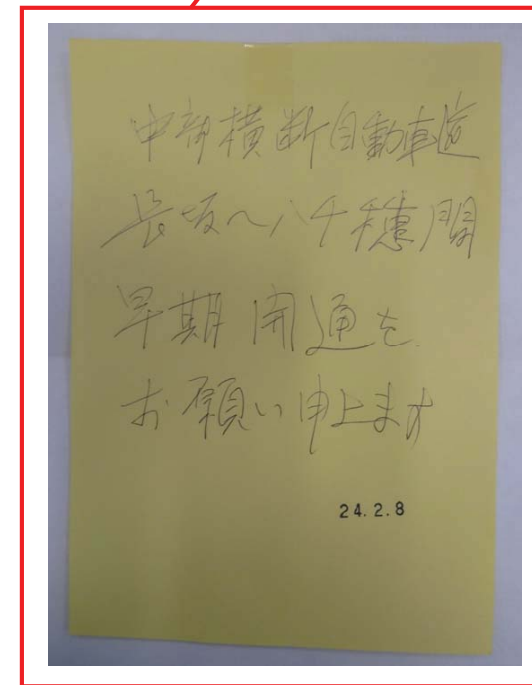 中部横断自動車道
長坂～八千穂間
早期開通を
お願い申上ます
24.2.8